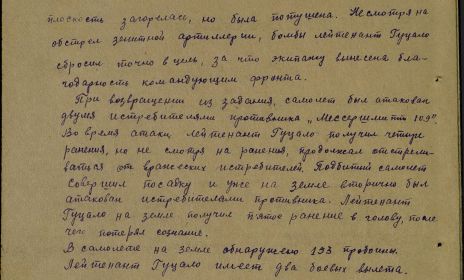 плоскость загорелась, но была потушена. Несмотря на
обстрел зенитной артиллерии, бомбы лейтенант Гуцало
сбросил точно в цель, за что экипажу вынесена бла-
годарность командующим фронта.
При возвращении из задания, самолет был атакован
двумя истребителями противника „Мессершмитт 109".
Во время атаки, лейтенант Гуцало получил четыре
ранения, но не смотря на ранения, продолжал отстрели-
ваться от вражеских истребителей. Подбитый самолет
совершил посадку и уже на земле вторично был
атакован истребителями противника. Лейтенант
Гуцало на земле получил пятое ранение в голову, после
чего потерял сознание.
В самолете на земле обнаружено 193 пробоины.
Лейтенант Гуцало имеет два боевых вылета.